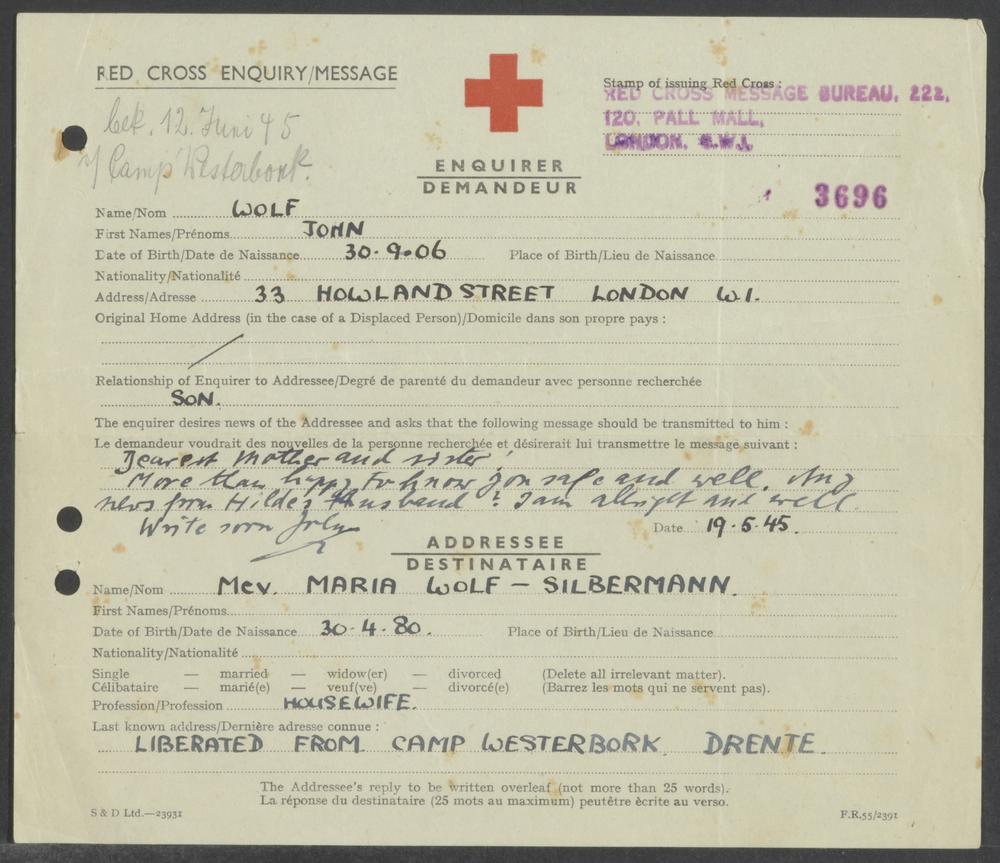 RED CROSS ENQUIRY/MESSAGE
Stamp of issuing Red Cross :
RED CROSS MESSAGE BUREAU, 222,
120, PALL MALL,
LONDON, S.W.1.
bek. 12. Juni 45
Camp Westerbork.
ENQUIRER
DEMANDEUR
3696
Name/Nom WOLF
First Names/Prénoms JOHN
Date of Birth/Date de Naissance 30-9-06 Place of Birth/Lieu de Naissance
Nationality/Nationalité
Address/Adresse 33 HOWLAND STREET LONDON W.1.
Original Home Address (in the case of a Displaced Person)/Domicile dans son propre pays :
Relationship of Enquirer to Addressee/Degré de parenté du demandeur avec personne recherchée
SON.
The enquirer desires news of the Addressee and asks that the following message should be transmitted to him :
Le demandeur voudrait des nouvelles de la personne recherchée et désirerait lui transmettre le message suivant :
Dearest Mother and sister!
More than happy to know you safe and well. Any
news from Hilde's Husband? I am allright and well
Write soon John
Date 19-5-45.
ADDRESSEE
DESTINATAIRE
Name/Nom Mev. MARIA WOLF - SILBERMANN.
First Names/Prénoms
Date of Birth/Date de Naissance 30-4-80. Place of Birth/Lieu de Naissance
Nationality/Nationalité
Single — married — widow(er) — divorced (Delete all irrelevant matter).
Célibataire — marié(e) — veuf(ve) — divorcé(e) (Barrez les mots qui ne servent pas).
Profession/Profession HOUSEWIFE.
Last known address/Dernière adresse connue :
LIBERATED FROM CAMP WESTERBORK DRENTE.
The Addressee's reply to be written overleaf (not more than 25 words).
La réponse du destinataire (25 mots au maximum) peutêtre ècrite au verso.
S & D Ltd.—23931
F.R.55/2391